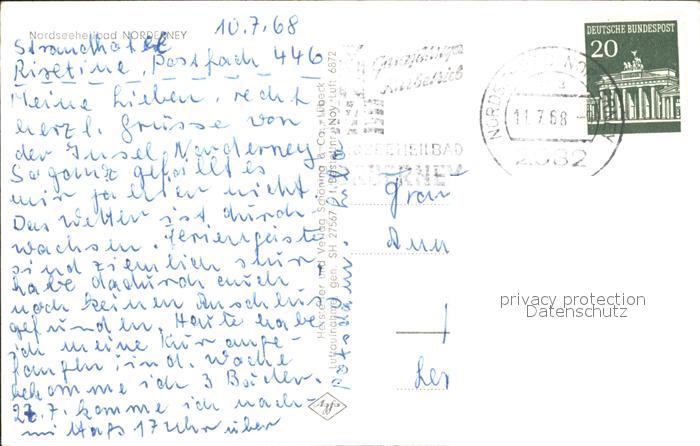 Nordseeheilbad NORDERNEY
10.7.68
Strandhotel
Risetine, Postfach 446
Meine Lieben, recht
herzl. Grüsse von
der Insel Norderney
So ganz gefällt es
mir ja hier nicht
Das Wetter ist durch-
wachsen. Feriengeiste
sind ziemlich stur
habe dadurch auch
noch keinen Anschluss
gefunden. Heute habe
ich meine Kur ange-
fangen, ind. Woche
bekomme ich 3 Bäder.
27.7. komme ich nach-
mittags 17 Uhr über
Potsdam.
Hansester und Verlag Schöning & Co., Lübeck
Luftaufnahme gen. SH 27567
Noy Luft 6872
Ganzjähriger
Kurbetrieb
NORDSEEHEILBAD
NORDERNEY
11.7.68
2982
DEUTSCHE BUNDESPOST
20
Frau
Ann
Ler
privacy protection
Datenschutz